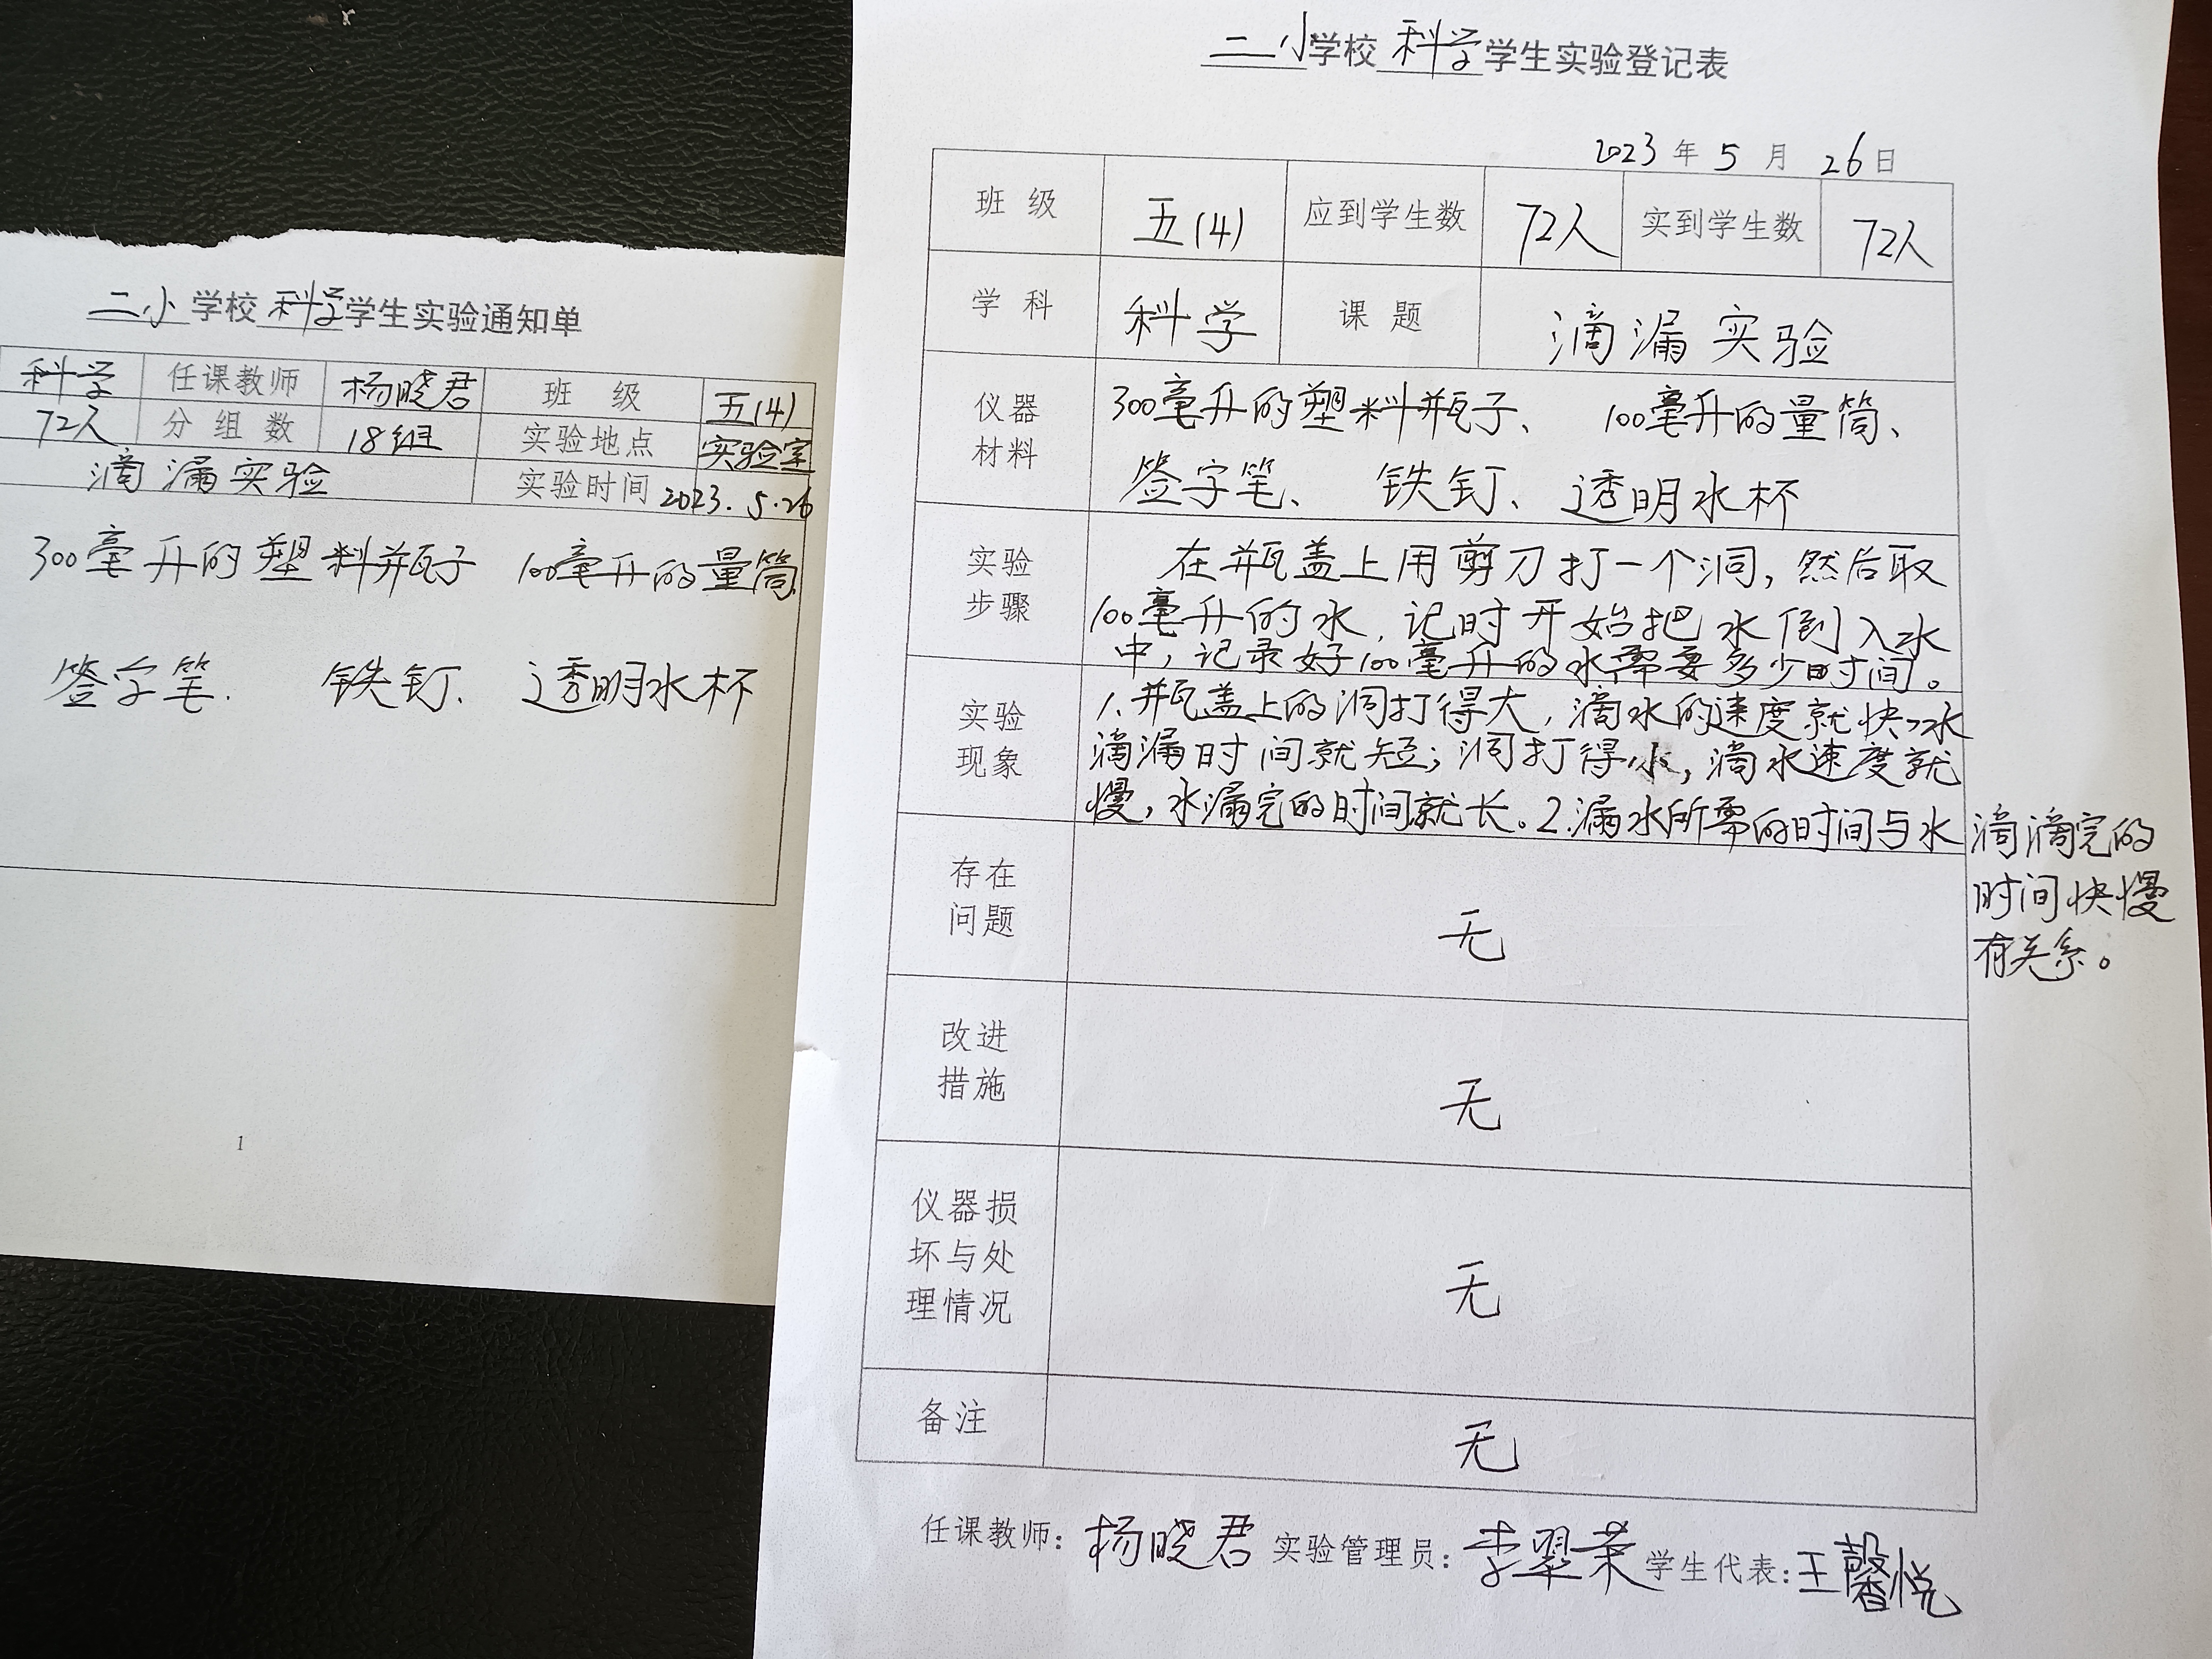 二小学校科学学生实验通知单
科学 任课教师 杨晓君 班 级 五(4)
72人 分组数 18组 实验地点 实验室
滴漏实验 实验时间 2023.5.26
300毫升的塑料瓶子 100毫升的量筒、
签字笔、 铁钉、 透明水杯
1
二小学校科学学生实验登记表
2023年5月26日
班 级 五(4) 应到学生数 72人 实到学生数 72人
学 科 科学 课 题 滴漏实验
仪器
材料
300毫升的塑料瓶子、 100毫升的量筒、
签字笔、 铁钉、透明水杯
实验
步骤
在瓶盖上用剪刀打一个洞,然后取
100毫升的水,记时开始把水倒入水
中,记录好100毫升的水需要多少时间。
实验
现象
1、瓶盖上的洞打得大,滴水的速度就快,水
滴漏时间就短;洞打得小,滴水速度就
慢,水漏完的时间就长。2.漏水所需的时间与水滴滴完的
时间快慢
有关系。
存在
问题
无
改进
措施
无
仪器损
坏与处
理情况
无
备注
无
任课教师:杨晓君 实验管理员:李翠荣 学生代表:王馨悦